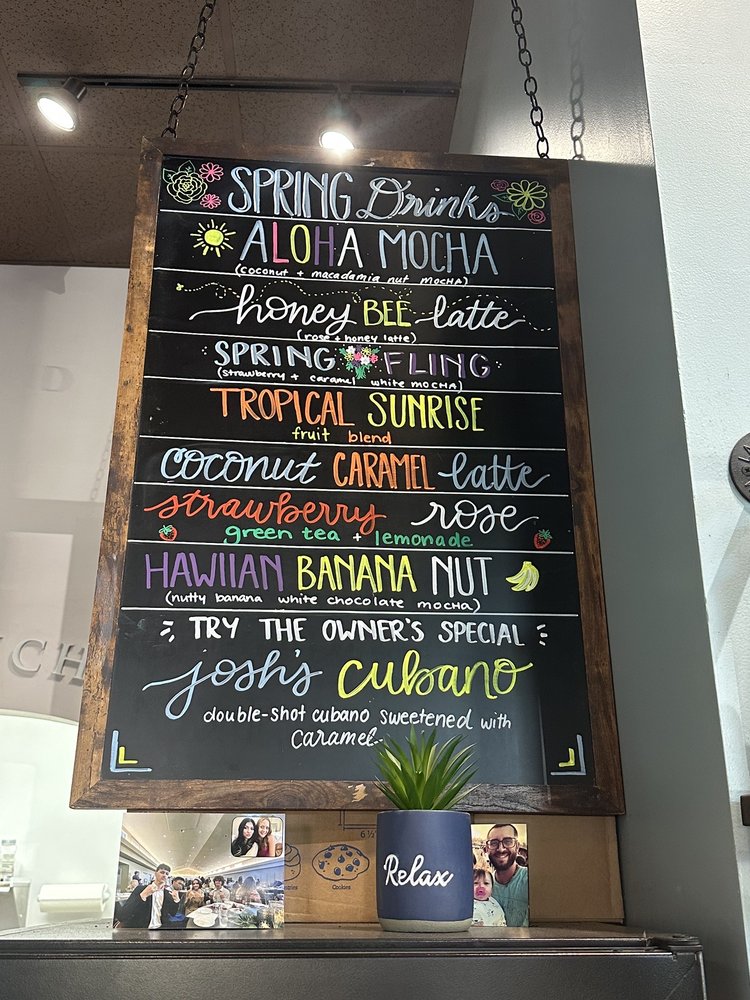 SPRING Drinks
ALOHA MOCHA
(coconut + macadamia nut mocha)
honey BEE latte
(rose + honey latte)
SPRING FLING
(strawberry + caramel white mocha)
TROPICAL SUNRISE
fruit blend
coconut CARAMEL latte
strawberry rose
green tea + lemonade
HAWIIAN BANANA NUT
(nutty banana white chocolate mocha)
TRY THE OWNER'S SPECIAL
josh's cubano
double-shot cubano sweetened with
caramel
Relax
Cookies
ICH
D